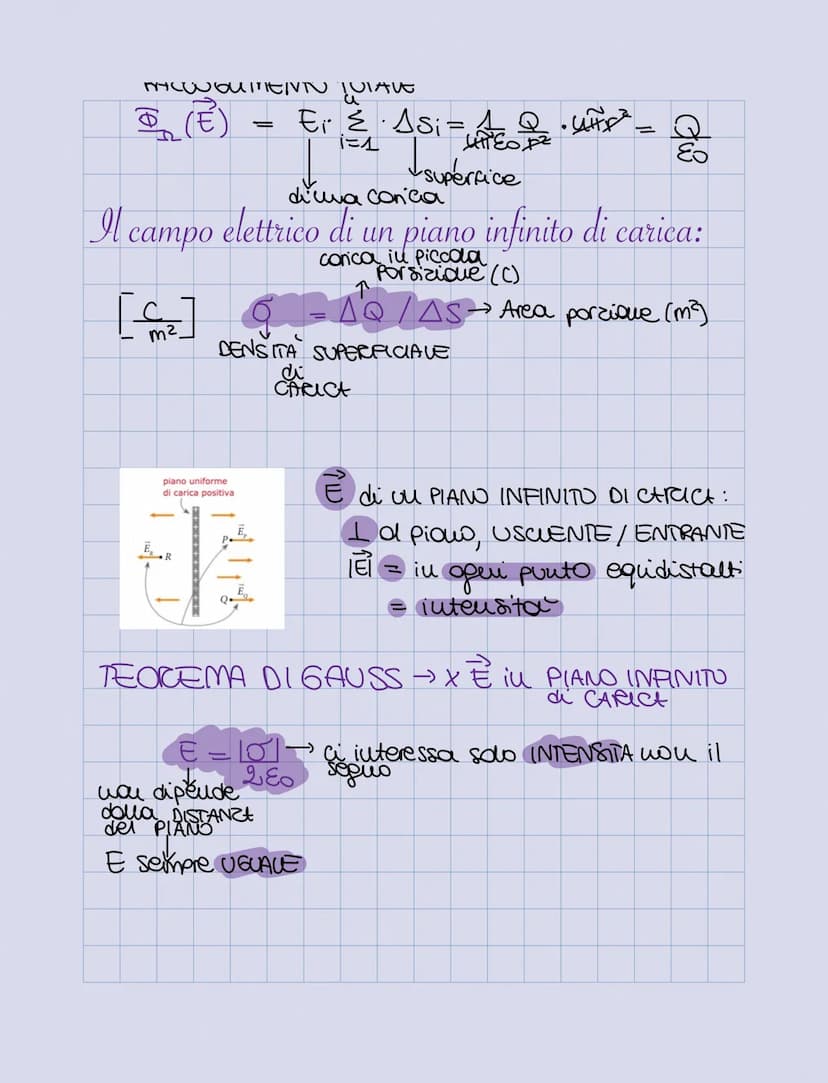 RACCOGLIMENTO TOTALE
Φ_Ω(E⃗) = Ei · Σ i=1 n · ΔSi = 1/4πε0 Q/r² · 4πr² = Q/ε0
superfice
di una carica
Il campo elettrico di un piano infinito di carica:
carica in piccola
porsizione (C)
[C/m²] σ = ΔQ / ΔS → Area porzione (m²)
DENSITÀ SUPERFICIALE
di
CARICA
piano uniforme
di carica positiva
E⃗ di un PIANO INFINITO DI CARICA:
⊥ al piano, USCIENTE / ENTRANTE
|E⃗| = in ogni punto equidistalti
= intensità
E⃗P
P
E⃗R
R
E⃗Q
Q
TEOREMA DI GAUSS → x E⃗ in PIANO INFINITO
di CARICA
E = |σ|/2ε0 → ci interessa solo INTENSITÀ non il
segno
non dipende
dalla DISTANZA
del PIANO
E sempre UGUALE